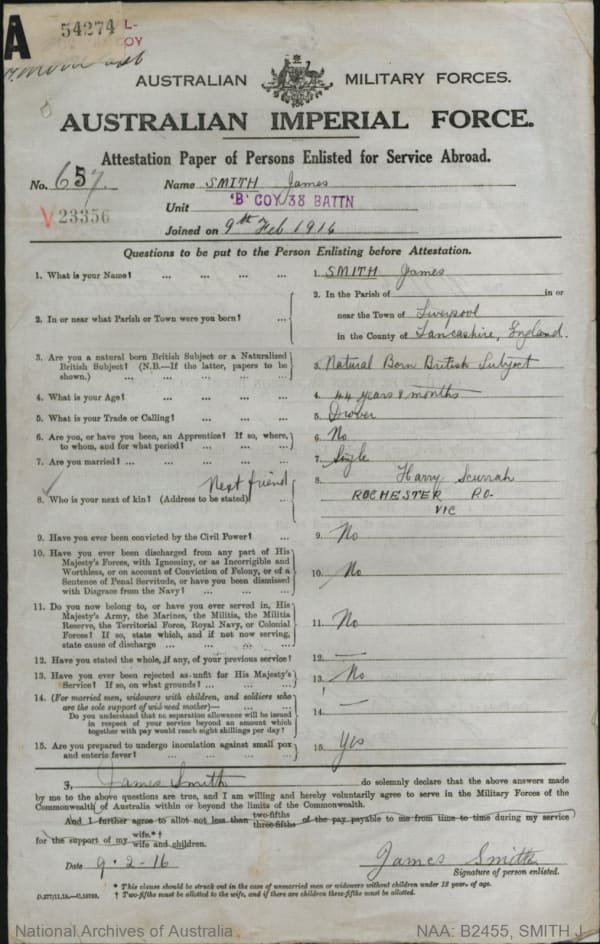 A
54274 L-
COY
AUSTRALIAN MILITARY FORCES.
AUSTRALIAN IMPERIAL FORCE.
Attestation Paper of Persons Enlisted for Service Abroad.
No. 657. Name SMITH James
V 23356 Unit 'B' COY 38 BATTN
Joined on 9th Feb 1916
Questions to be put to the Person Enlisting before Attestation.
1. What is your Name? ... ... ... ... 1. SMITH James
2. In or near what Parish or Town were you born? ... 2. In the Parish of in or
near the Town of Liverpool
in the County of Lancashire, England.
3. Are you a natural born British Subject or a Naturalised
British Subject? (N.B.—If the latter, papers to be
shown.) ... ... ... ... 3. Natural Born British Subject
4. What is your Age? ... ... ... ... 4. 44 years 8 months
5. What is your Trade or Calling? ... ... ... 5. Drover
6. Are you, or have you been, an Apprentice? If so, where,
to whom, and for what period? ... ... ... 6. No
7. Are you married? ... ... ... ... 7. Single
Next friend
8. Who is your next of kin? (Address to be stated) 8. Harry Scurrah
ROCHESTER P.O.
VIC
9. Have you ever been convicted by the Civil Power? ... 9. No
10. Have you ever been discharged from any part of His
Majesty's Forces, with Ignominy, or as Incorrigible and
Worthless, or on account of Conviction of Felony, or of a
Sentence of Penal Servitude, or have you been dismissed
with Disgrace from the Navy? ... ... ... 10. No
11. Do you now belong to, or have you ever served in, His
Majesty's Army, the Marines, the Militia, the Militia
Reserve, the Territorial Force, Royal Navy, or Colonial
Forces? If so, state which, and if not now serving,
state cause of discharge ... ... ... ... 11. No
12. Have you stated the whole, if any, of your previous service? 12. —
13. Have you ever been rejected as unfit for His Majesty's
Service? If so, on what grounds? ... ... ... 13. No
14. (For married men, widowers with children, and soldiers who
are the sole support of widowed mother)— ... ...
Do you understand that no separation allowance will be issued
in respect of your service beyond an amount which
together with pay would reach eight shillings per day? 14. —
15. Are you prepared to undergo inoculation against small pox
and enteric fever? ... ... ... ... 15. Yes
I, James Smith do solemnly declare that the above answers made
by me to the above questions are true, and I am willing and hereby voluntarily agree to serve in the Military Forces of the
Commonwealth of Australia within or beyond the limits of the Commonwealth.
And I further agree to allot not less than two-fifths three-fifths of the pay payable to me from time to time during my service
for the support of my wife.*† wife and children.
Date 9.2.16 James Smith
Signature of person enlisted.
* This clause should be struck out in the case of unmarried men or widowers without children under 18 years of age.
† Two-fifths must be allotted to the wife, and if there are children three-fifths must be allotted.
National Archives of Australia NAA: B2455, SMITH J